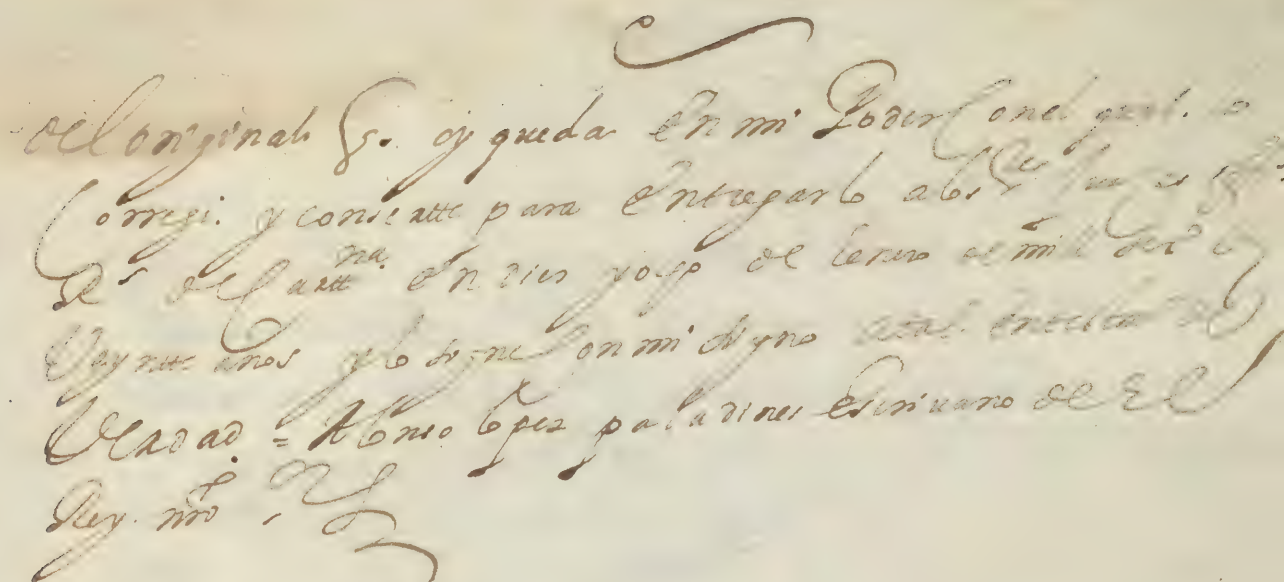 del original q. oy queda en mi Poder Con el qual lo
Correji. y conserte para entregarlo a los
Rs. de Cartt.na en dies y ocho de henero de mil
Vaynte años y lo signe Con mi signo atal en testim.o de
Verdad = Alonso Lopez paladines Escrivano de El
Rey nro